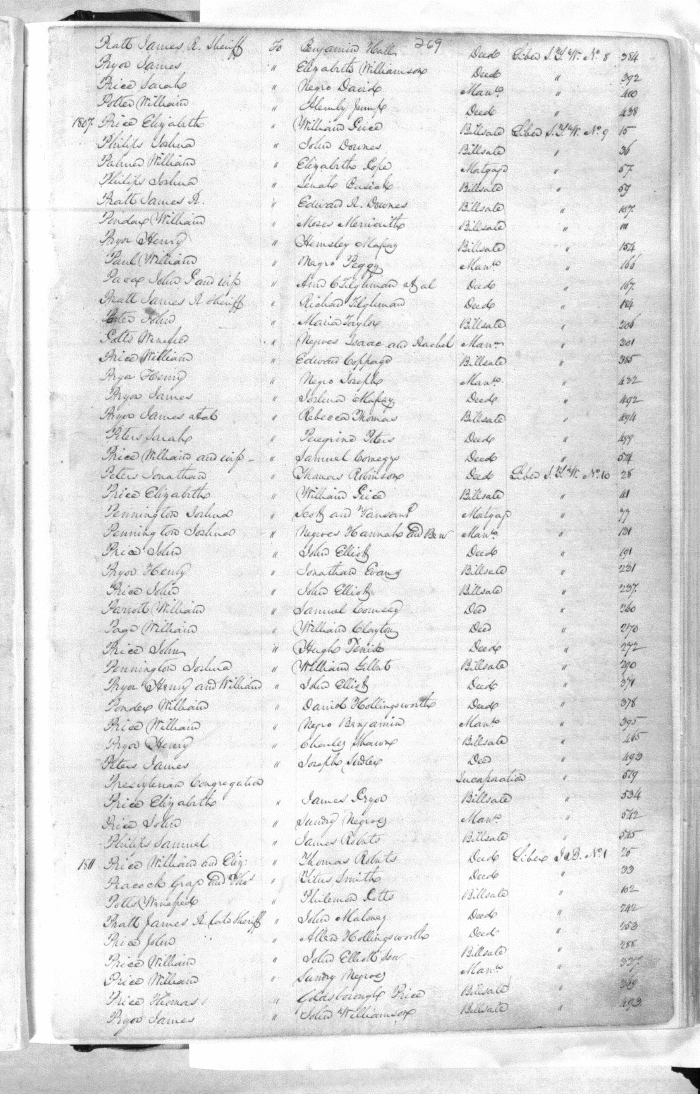 269
Pratt James R. Sheriff To Benjamin Hall Deed Liber S.T.W. No. 8 384
Pryor James " Elizabeth Williamson Deed " 392
Price Sarah " Negro David Mann. " 410
Potter William " Hemsly Jump Deed " 438
1807 Price Elizabeth " William Price Billsale Liber S.T.W. No. 9 15
Philips Joshua " John Downes Billsale " 36
Palmer William " Elizabeth Cope Mortgage " 57
Philips Joshua " Billsale " 59
Pratt James R. " Edward R. Downes Billsale " 107
Pindar William " Moses Meriwith Billsale " 111
Pryor Henry " Hemsley Billsale " 154
Paul William " Negro Peggy Mann. " 166
Pacca John P and wife " Ann C Tilghman et al Deed " 167
Pratt James R Sheriff " Richard Tilghman Deed " 184
Peter John " Maria Taylor Billsale " 206
Potts Winefred " Negroes Isaac and Rachel Mann. " 301
Price William " Edward Coppage Billsale " 385
Prya Henry " Negro Joseph Mann. " 432
Pryor James " Joshua Deed " 492
Pryor James et al " Rebecca Thomas Billsale " 494
Peters Sarah " Peregrine Peters Deed " 499
Price William and wife " Samuel Comegys Deed " 524
Peters Jonathan " Robinson Deed Liber S.T.W. No. 10 28
Price Elizabeth " William Price Billsale " 41
Pennington Joshua " Scott and Vansant Mortgage " 77
Pennington Joshua " Negroes Hannah and Ben Mann. " 131
Price John " John Elliott Deed " 191
Pryor Henry " Jonathan Evans Billsale " 231
Price John " John Elliott Billsale " 237
Parrott William " Samuel Comsey Deed " 260
Page William " William Clayton Deed " 270
Price John " Hugh Deed " 272
Pennington Joshua " William Gilbert Billsale " 290
Pryor Henry and William " John Elliott Deed " 371
Pindar William " Daniel Hollingsworth Deed " 378
Price William " Negro Benjamin Mann. " 395
Pryor Henry " Charles Billsale " 465
Peters James " Joseph Sudler Deed " 493
Presbyterian Congregation Incorporation " 519
Price Elizabeth " James Pryor Billsale " 534
Price John " Sundry Negroes Mann. " 542
Philips Samuel " James Roberts Billsale " 545
1811 Price William and Eliz: " Thomas Roberts Deed Liber J.B. No. 1 25
Peacock Grap and Thos " Titus Smith Deed " 33
Potts Winefred " Philemon Potts Billsale " 102
Pratt James R late Sheriff " John Maloney Deed " 242
Price John " Allen Hollingsworth Deed " 253
Price William " John Elliott Billsale " 288
Price William " Sundry Negroes Mann. " 337
Price Thomas " Goldsborough Price Billsale " 389
Pryor James " John Williamson Billsale " 493